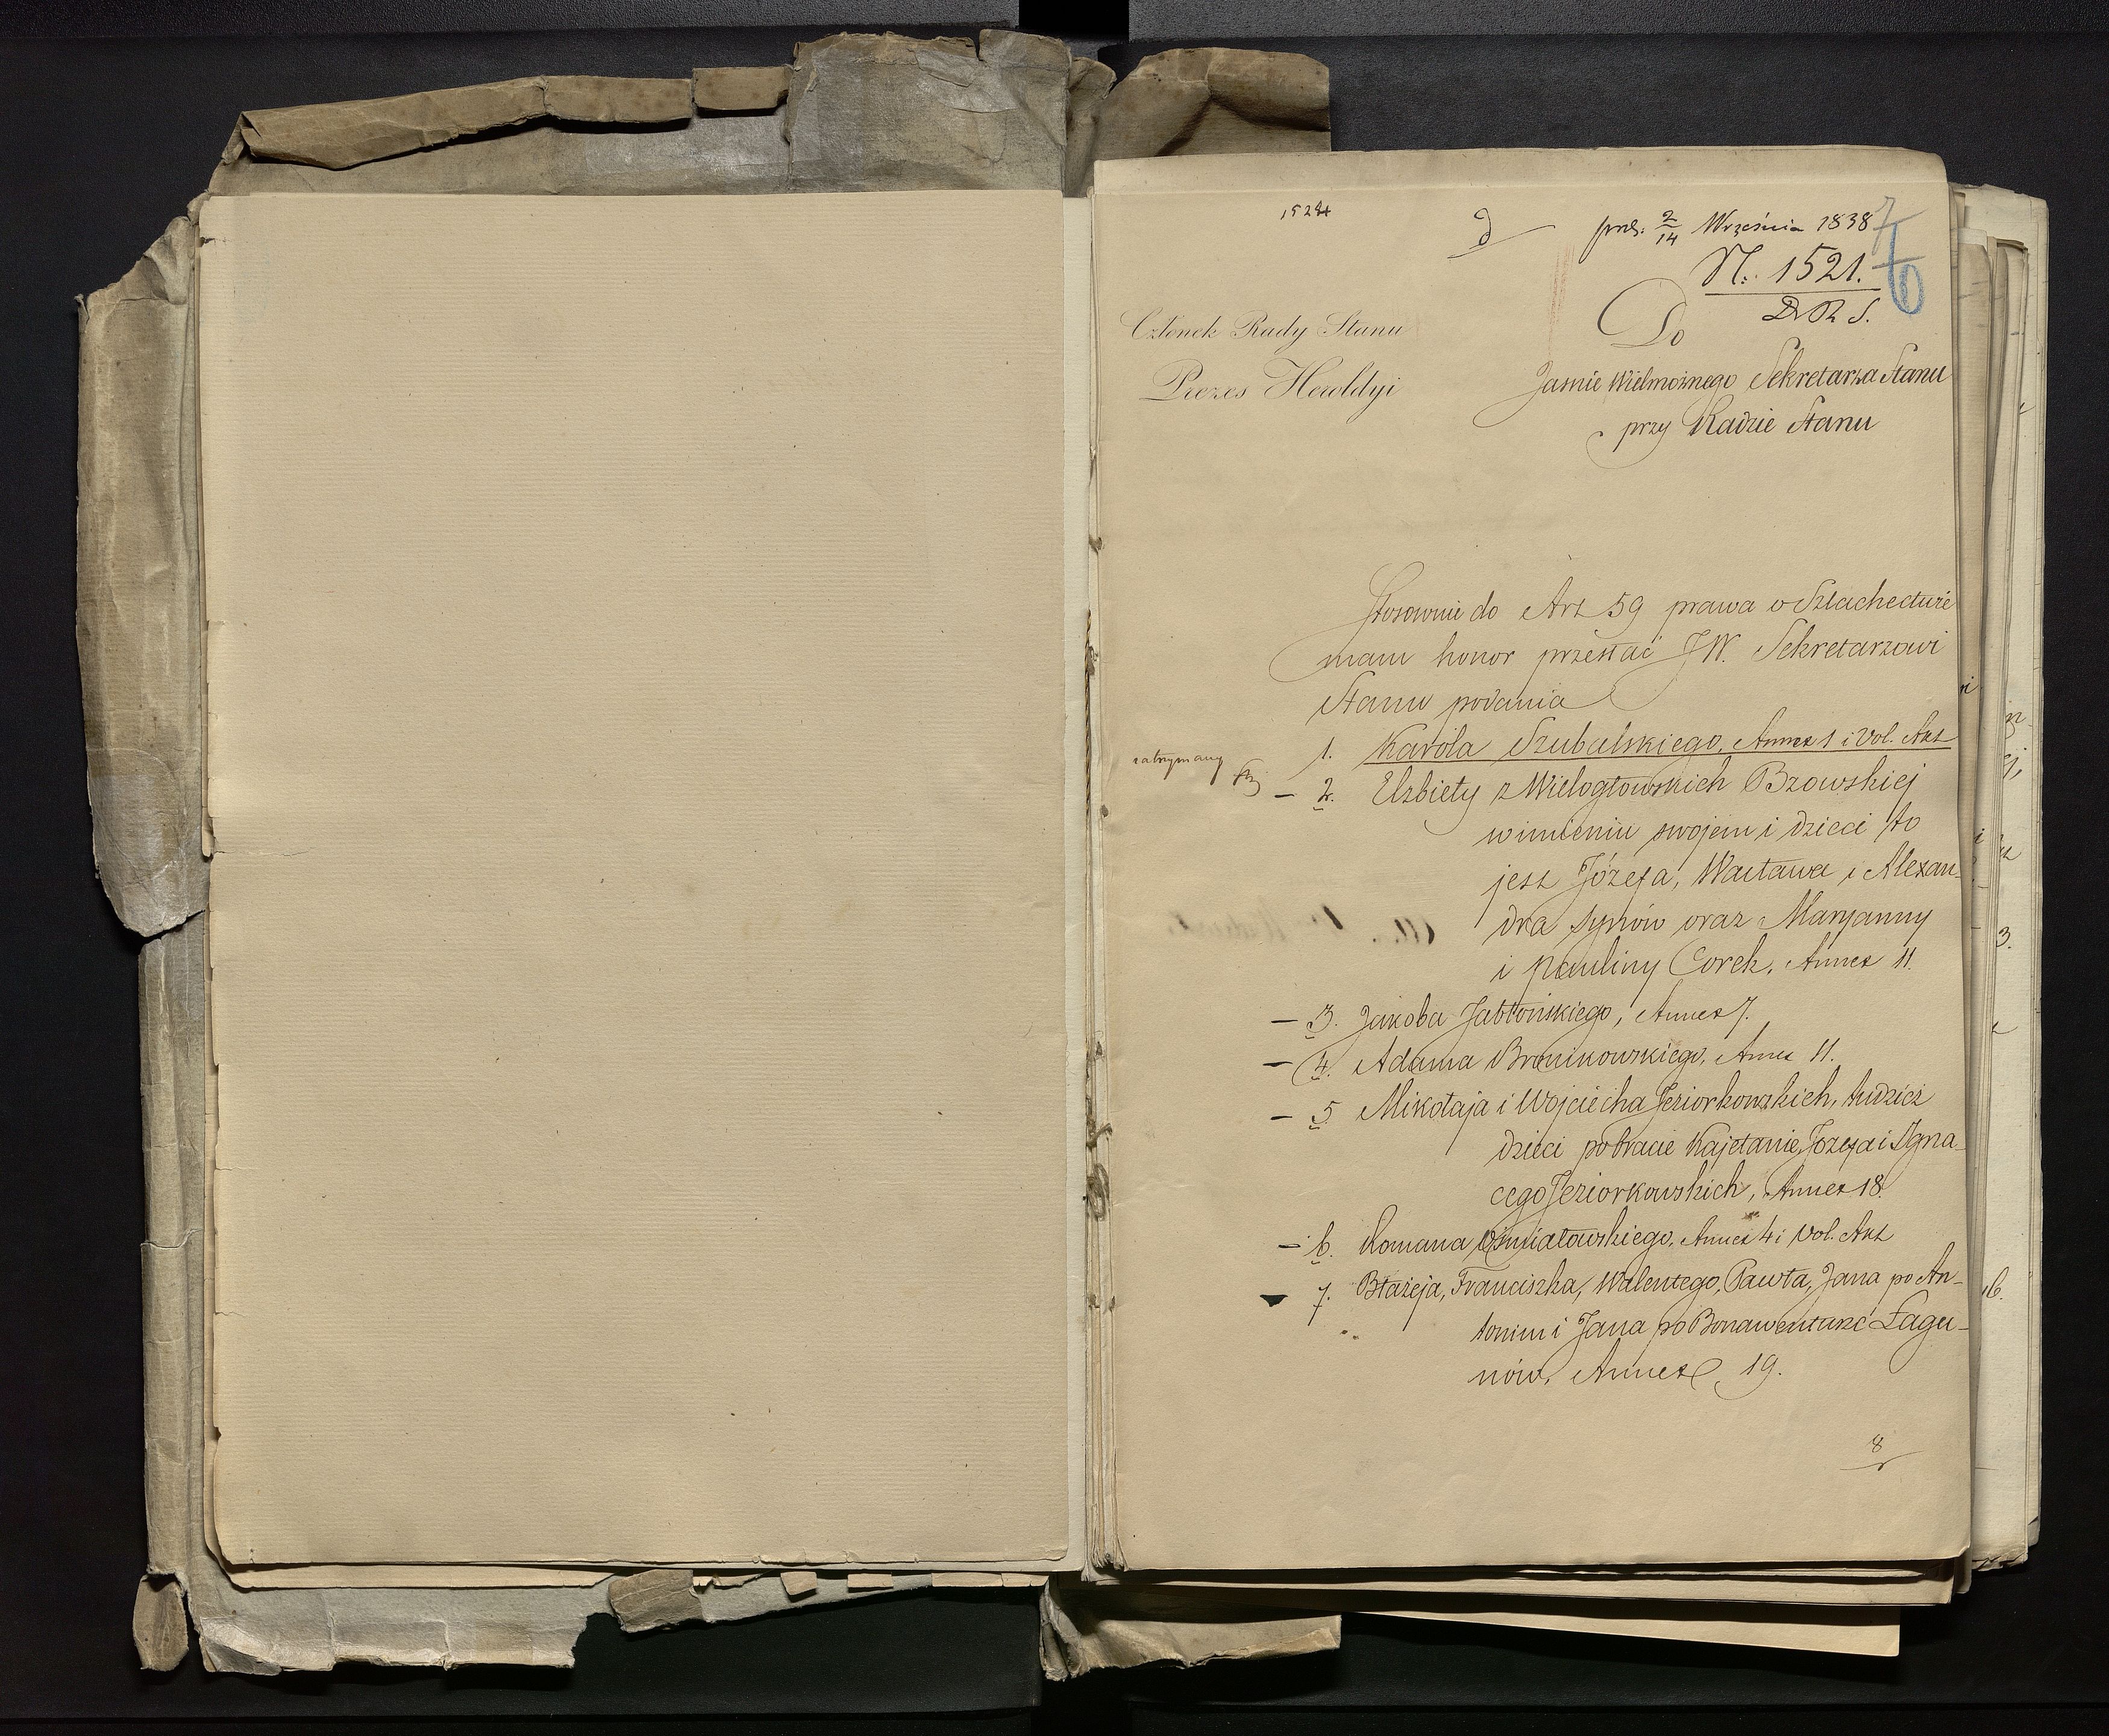 1524
prds: 2/14 Września 1838
N: 1521.
D R S.
7
6
Członek Rady Stanu
Prezes Heroldyi
Do
Jaśnie Wielmożnego Sekretarza Stanu
przy Radzie Stanu
Stosownie do Art 59 prawa o Szlachectwie
mam honor przesłać JW. Sekretarzowi
Stanu podania
1. Karola Szubalskiego, Annex 1 i Vol. Akt
zatrzymany
- 2. Elżbiety z Wielogłowskich Bzowskiej
w imieniu swojem i dzieci to
jest Józefa, Wacława i Alexan-
dra synów oraz Maryanny
i Pauliny Córek, Annex 11.
- 3. Jakóba Jabłońskiego, Annex 7.
- 4. Adama Bronikowskiego, Annex 11.
- 5 Mikołaja i Wojciecha Jeziorkowskich, tudzież
dzieci po bracie Kajetanie, Józefa i Igna-
cego Jeziorkowskich, Annex 18.
- 6. Romana Ośmiałowskiego, Annex 4 i Vol. Akt
- 7. Błażeja, Franciszka, Walentego, Pawła, Jana po An-
tonim i Jana po Bonawenturze Łagu-
nów, Annex 19.
8